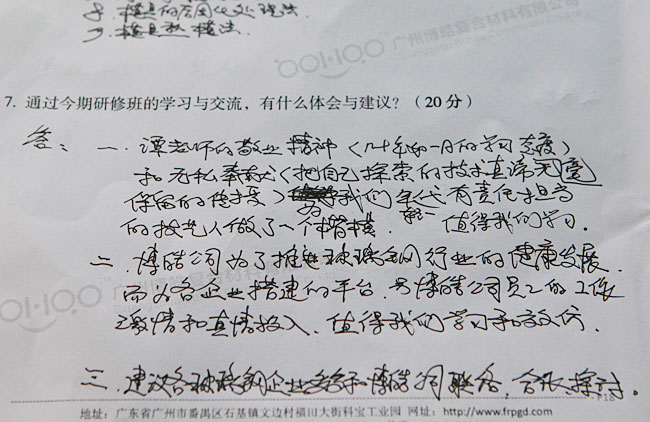 8. 模具的合固化处理法.
9. 模具数模法.
广州博皓复合材料有限公司
7. 通过今期研修班的学习与交流，有什么体会与建议？（20 分）
答：一. 谭老师的敬业精神（几十年如一日的学习态度）
和无私奉献（把自己探索的技术真谛无毫
保留的传授）为我们年代有责任担当
的技艺人做了一个楷模. 值得我们学习.
二. 博皓公司为了推进玻璃钢行业的健康发展.
而为各企业搭建的平台. 与博皓公司员工的工作
激情和真情投入. 值得我们学习和效仿.
三. 建议各玻璃钢企业多多和博皓公司联络, 合张、探讨.
地址：广东省广州市番禺区石基镇文边村福田大街科宝工业园 网址：http://www.frpgd.com